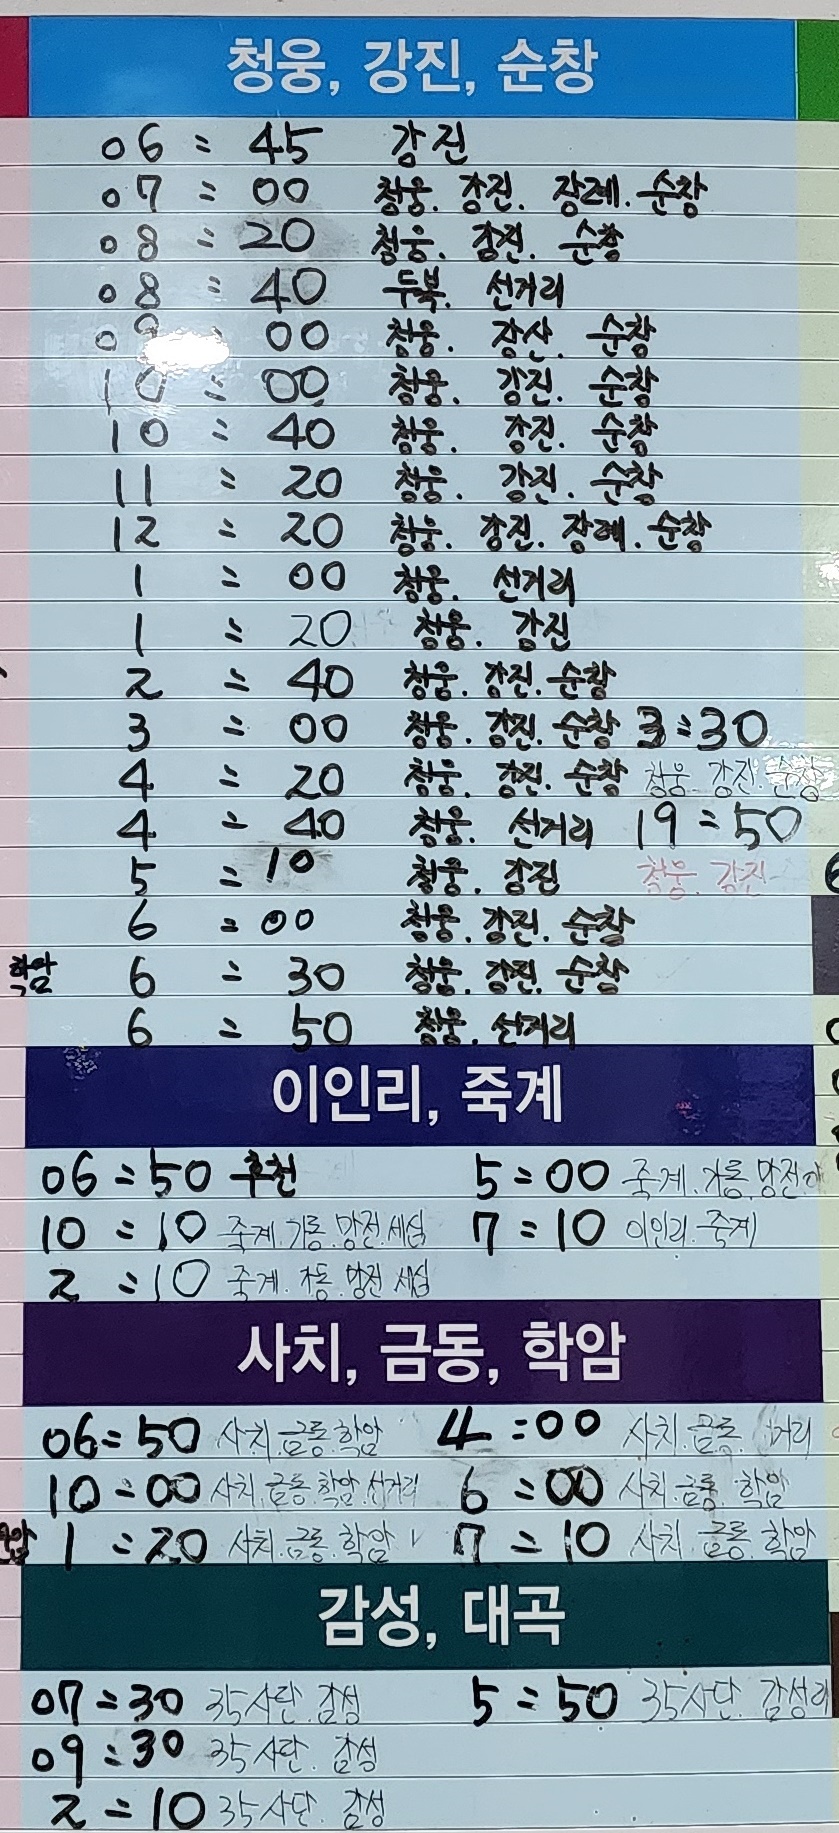 청웅, 강진, 순창
06 : 45 강진
07 : 00 청웅. 강진. 장례. 순창
08 : 20 청웅. 강진. 순창
08 : 40 두복. 선거리
09 : 00 청웅. 강산. 순창
10 : 00 청웅. 강진. 순창
10 : 40 청웅. 강진. 순창
11 : 20 청웅. 강진. 순창
12 : 20 청웅. 강진. 장례. 순창
1 : 00 청웅. 선거리
1 : 20 청웅. 강진
2 : 40 청웅. 강진. 순창
3 : 00 청웅. 강진. 순창 3:30
4 : 20 청웅. 강진. 순창 청웅. 강진. 순창
4 : 40 청웅. 선거리 19:50
5 : 10 청웅. 강진 청웅. 강진
6 : 00 청웅. 강진. 순창
학암 6 : 30 청웅. 강진. 순창
6 : 50 청웅. 선거리
이인리, 죽계
06:50 후천 5:00 죽계. 가동. 망전
10:10 죽계. 가동. 망전. 세심 7:10 이인리. 죽계
2:10 죽계. 가동. 망전 세심
사치, 금동, 학암
06:50 사치. 금동. 학암 4:00 사치. 금동. 거리
10:00 사치. 금동. 학암. 선거리 6:00 사치. 금동. 학암
1:20 사치. 금동. 학암 7:10 사치. 금동. 학암
감성, 대곡
07:30 35사단. 감성 5:50 35사단. 감성리
09:30 35사단. 감성
2:10 35사단. 감성